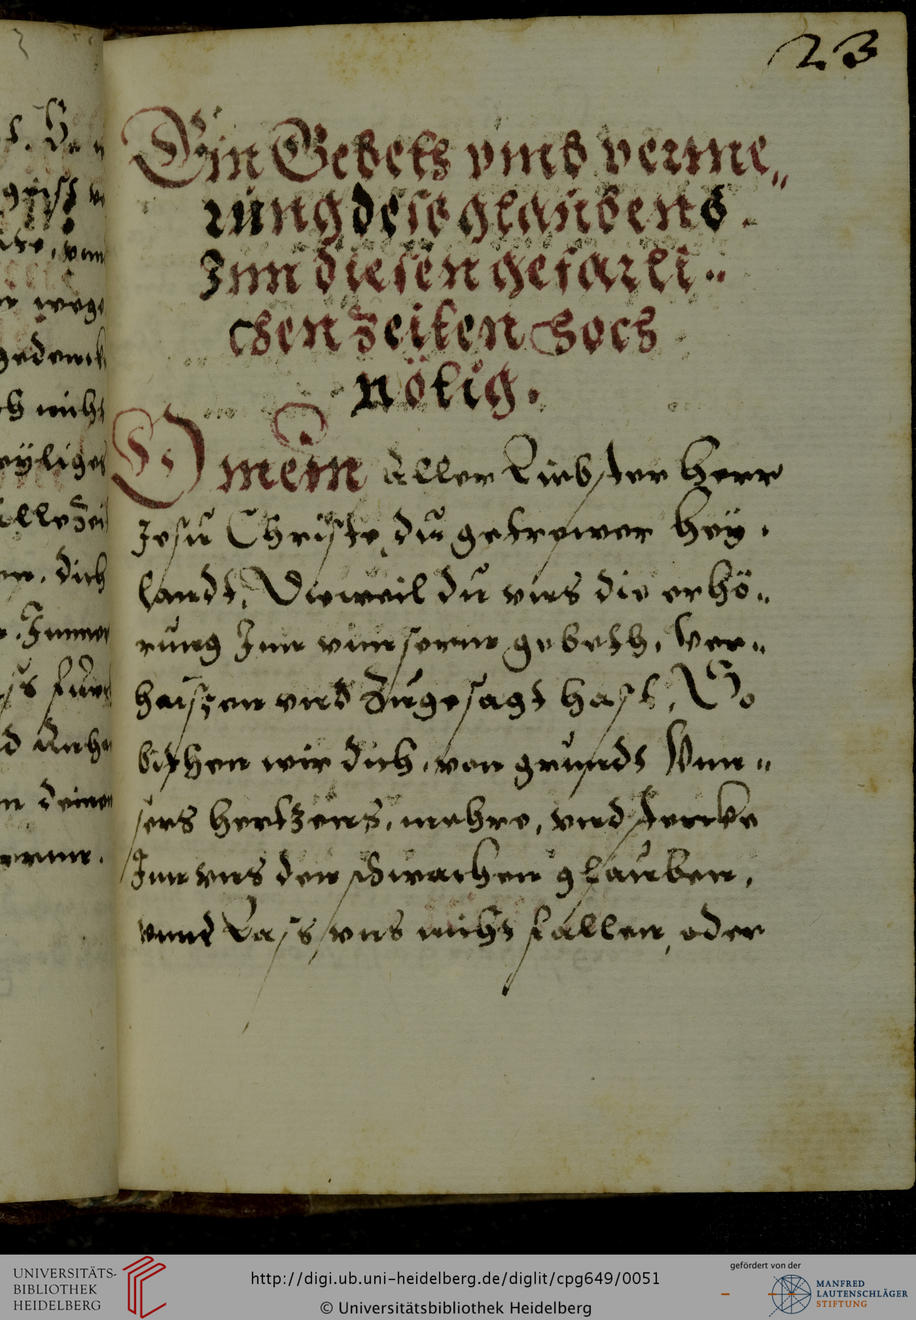 23
Ein Gebett vmb verme„
rung dess glaubens
Inn diesen gefarli„
chen Zeiten hoch
nötig.
O mein aller Liebster herr
Jesu Christe, du getrewer hey„
landt, Dieweil du vns die erhö„
rung Inn vnnserm gebeth, ver„
haissen vnd Zugesagt hast, So
bithen wir dich, von grundt Vnn„
sers hertzens, mehre, vnd stercke
Inn vns den schwachen glauben,
vnnd Lass vns nicht fallen, oder
UNIVERSITÄTS-
BIBLIOTHEK
HEIDELBERG
http://digi.ub.uni-heidelberg.de/diglit/cpg649/0051
© Universitätsbibliothek Heidelberg
gefördert von der
MANFRED
LAUTENSCHLÄGER
STIFTUNG